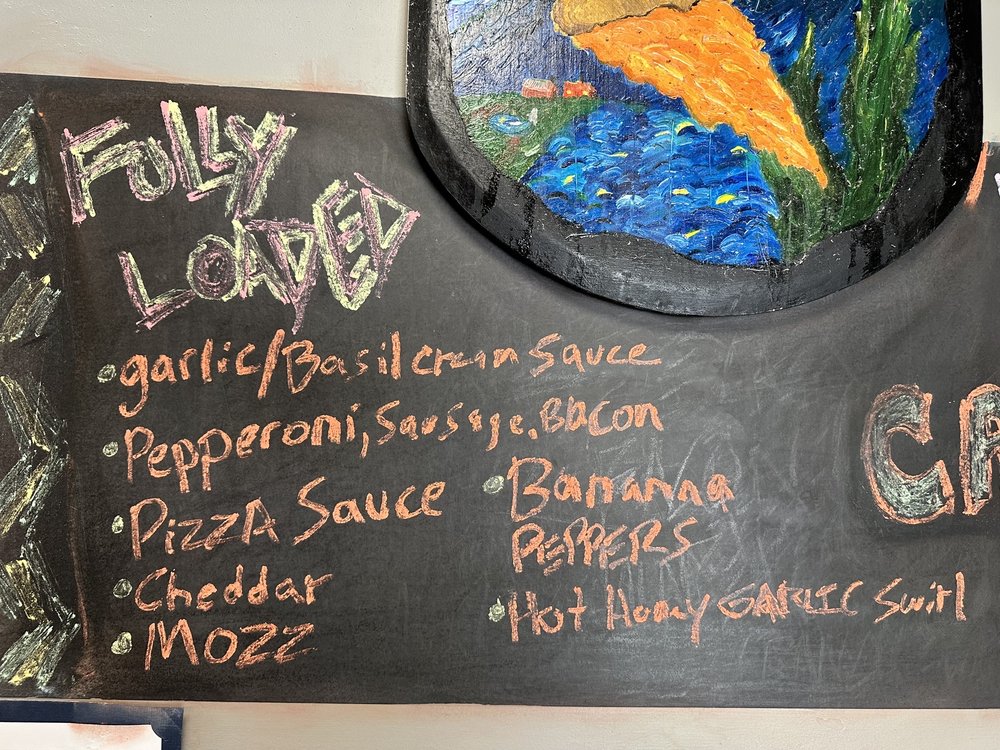 FULLY
LOADED
• garlic/Basil cream sauce
• Pepperoni, Sausage, Bacon
• Pizza Sauce
• Cheddar
• Mozz
• Bananna
PEPPERS
• Hot Honey GARLIC Swirl
CA